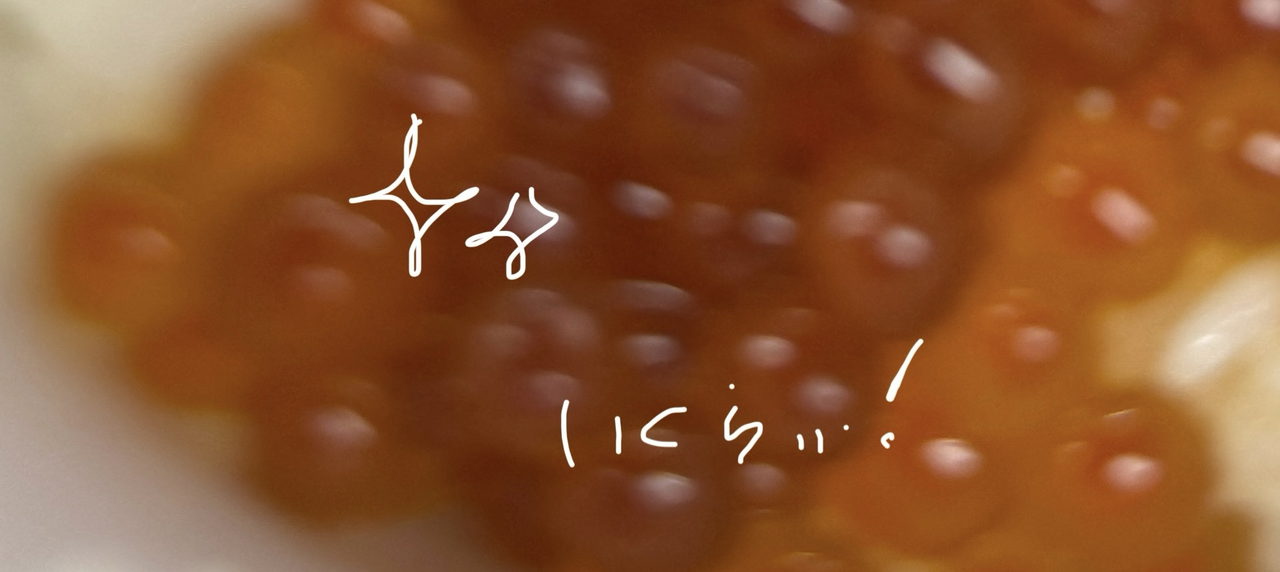 いくら…!